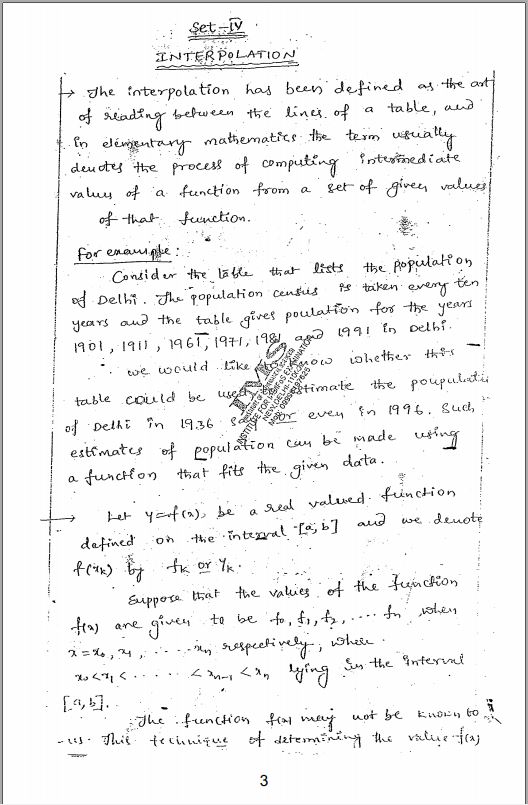 Set-IV
INTERPOLATION
→ The interpolation has been defined as the art
of reading between the lines of a table, and
in elementary mathematics the term usually
denotes the process of computing intermediate
values of a function from a set of given values
of that function.
For example:
Consider the table that lists the population
of Delhi. The population census is taken every ten
years and the table gives poulation for the years
1901, 1911, 1961, 1971, 1981 and 1991 in Delhi.
we would like to know whether this
table could be used estimate the poupulati
of Delhi in 1936 or even in 1996. Such
estimates of population can be made using
a function that fits the given data.
INSTITUTE FOR EXAMINATION
→ Let y=f(x), be a real valued function
defined on the interval [a,b] and we denote
f(xk) by fk or yk.
Suppose that the values of the function
f(x) are given to be f0, f1, f2, .... fn when
x=x0, x1, ...... xn respectively, where
x0<x1< ...... <xn-1 <xn lying in the interval
[a,b].
The function f(x) may not be known to
us. This technique of determining the value f(x)
3